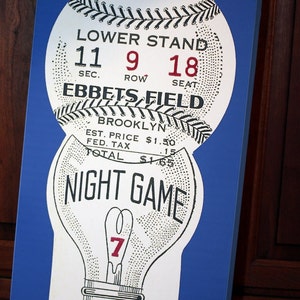 LOWER STAND
11 9 18
SEC. ROW SEAT
EBBETS FIELD
BROOKLYN
EST. PRICE $1.50
FED. TAX .15
TOTAL $1.65
NIGHT GAME
7